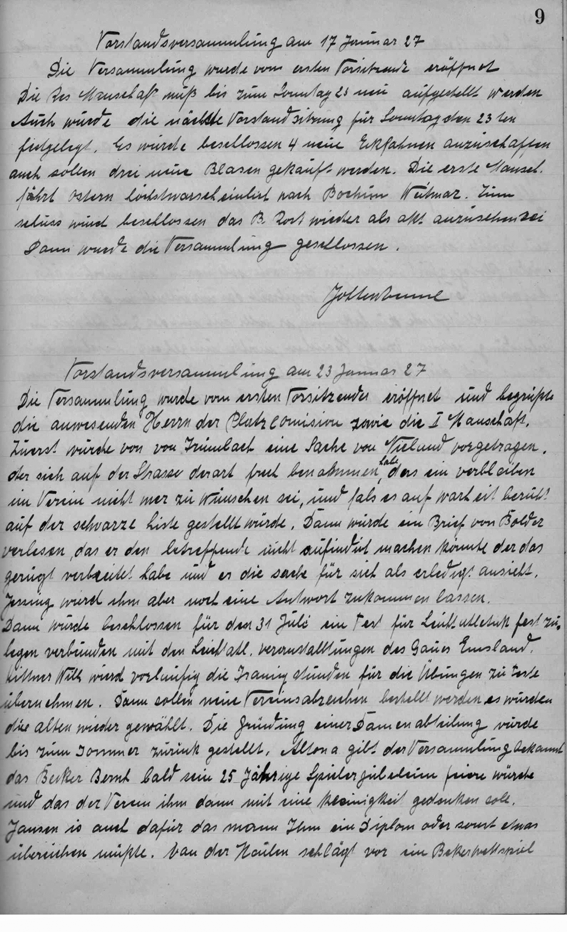 9
Vorstandsversammlung am 17 Januar 27
Die Versammlung wurde vom ersten Vorsitzende eröffnet
Die Res Manschaft muß bis zum Sonntag 23 neu aufgestellt werden
Auch wurde die nächste Vorstandsitzung für Sonntag den 23 ten
festgelegt. Es wurde beschlossen 4 neue Eckfahnen anzuschaffen
auch sollen drei neue Blasen gekauft werden. Die erste Mansch.
fährt Ostern nach Bochum Weitmar. Zum
schluss wurd beschlossen das B. Rort wieder als akt anzusehen sei
Dann wurde die Versammlung geschlossen.
Vorstandsversammlung am 23 Januar 27
Die Versammlung wurde vom ersten Vorsitzender eröffnet und begrüßte
die anwesenden Herrn der Platzcomision sowie die I Manschaft.
Zuerst wurde von von eine Sache von vorgetragen,
der sich auf der Strasse derart frech benahmen habe, das ein verbleiben
im Verein nicht mer zu wünschen sei, und fals es auf warheit beruht
auf der schwarze Liste gestellt würde. Dann wurde ein Brief von Bolder
verlesen, das er den betreffende nicht aufindut machen könnte der das
gerügt verbreitet habe und er die sache für sich als erledigt ansieht.
wird ihm aber noch eine Antwort zukommen lassen.
Dann wurde beschlossen für den 31 Juli ein Fest für fest zu
legen verbunden mit den Leichtatl. veranstalltungen des Gaues Emsland.
Willi wird vorläufig die stunden für die Übungen zu
übernehmen. Dann sollen neue Vereinsabzeichen bestellt werden, es wurden
die alten wieder gewählt. Die Gründung einer Damenabteilung wurde
bis zum Sommer zurück gestellt. Altona gibt der Versammlung bekannt
das Becker Bernh bald sein 25 Jährege feiere würde
und das der Verein ihm dann mit eine kleinigkeit gedenken solle.
Jansen is auch dafür das mann Ihm ein Diplom oder sonst etwas
überreichen müßte. Van der schlägt vor ein